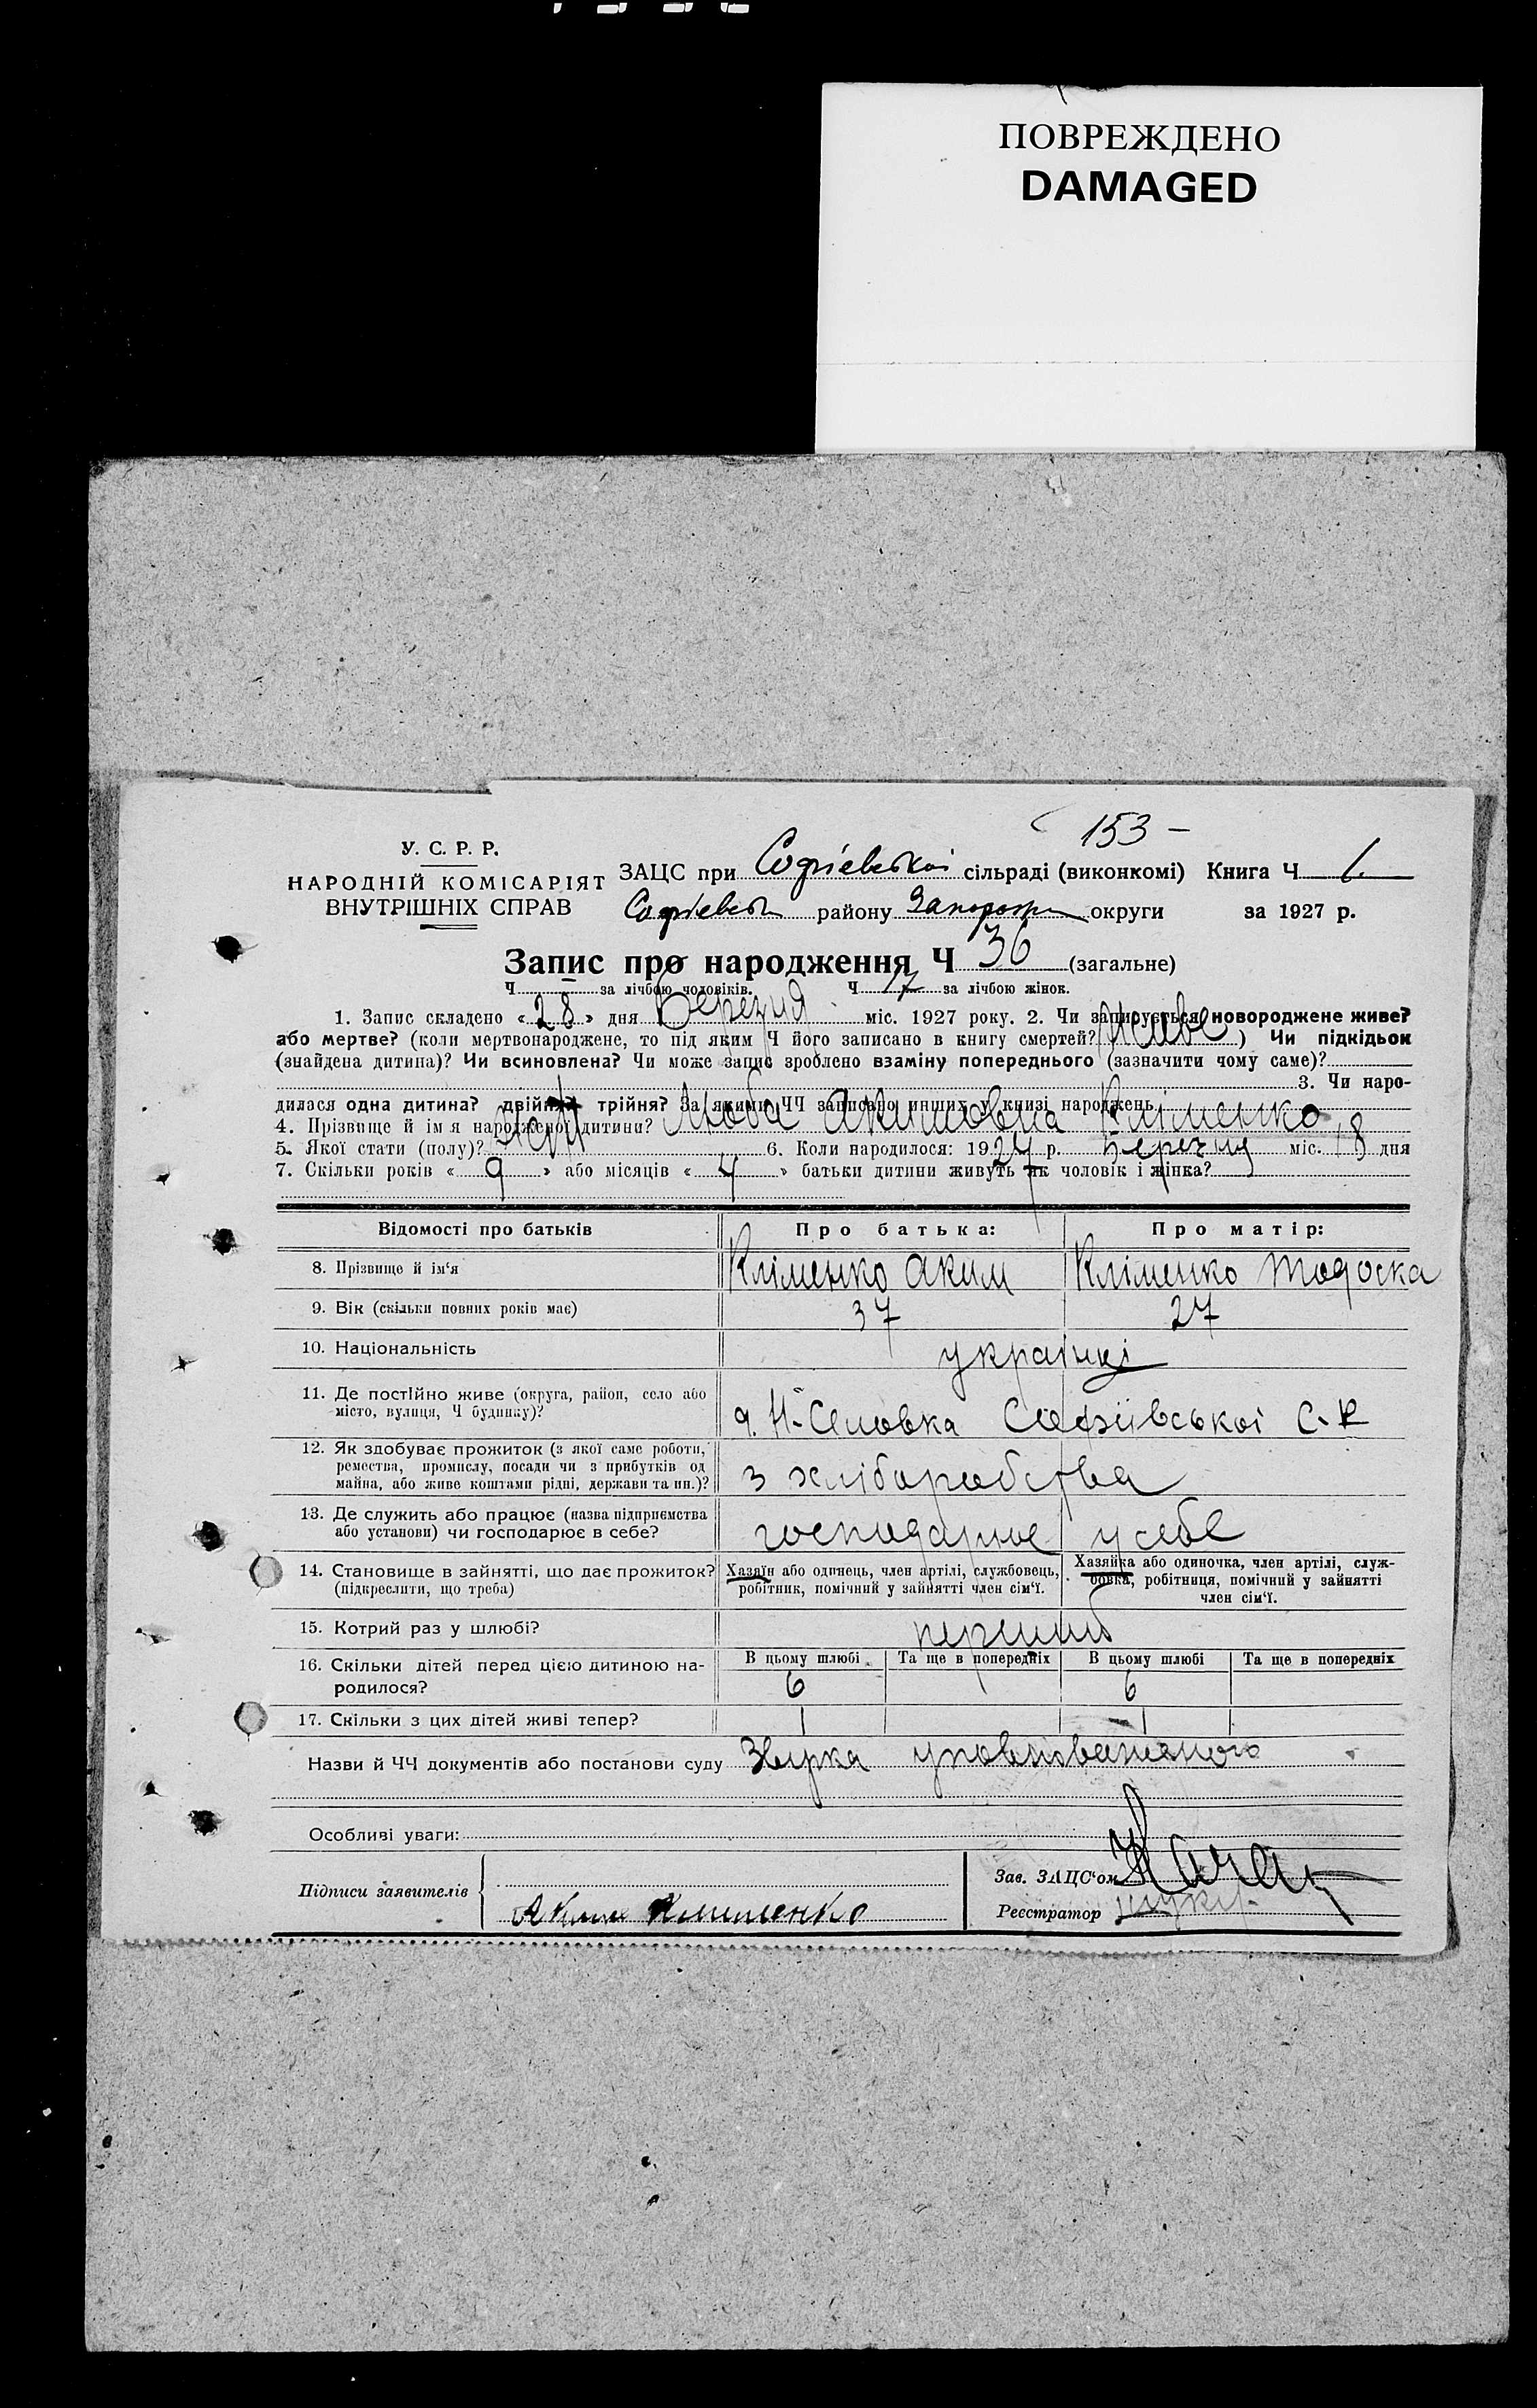 ПОВРЕЖДЕНО
DAMAGED
153 –
У. С. Р. Р.
НАРОДНІЙ КОМІСАРІЯТ
ВНУТРІШНІХ СПРАВ
ЗАЦС при Софієвськоі сільраді (виконкомі) Книга Ч 1.
Софієвськ району Запорож округи за 1927 р.
Запис про народження Ч 36 (загальне)
Ч за лічбою чоловіків. Ч 17 за лічбою жінок.
1. Запис складено «28» дня Березня міс. 1927 року. 2. Чи записується новороджене живе?
або мертве? (коли мертвонароджене, то під яким Ч його записано в книгу смертей? живе) Чи підкідьок
(знайдена дитина)? Чи всиновлена? Чи може запис зроблено взаміну попереднього (зазначити чому саме)?
3. Чи наро-
дилася одна дитина? двійня? трійня? За якими ЧЧ записано инших у книзі народжень
4. Прізвище й ім'я народженої дитини? Люба Акимовна Кліменко
5. Якої стати (полу)? жен 6. Коли народилося: 1927 р. Березня міс. 18 дня
7. Скільки років «9» або місяців «4» батьки дитини живуть як чоловік і жінка?
Відомості про батьків Про батька: Про матір:
8. Прізвище й ім'я Кліменко Аким Кліменко Тодоска
9. Вік (скільки повних років має) 37 27
10. Національність украінці
11. Де постійно живе (округа, район, село або
місто, вулиця, Ч будинку)? Софіівськоі С-Р
12. Як здобуває прожиток (з якої саме роботи,
ремества, промислу, посади чи з прибутків од
майна, або живе коштами рідні, держави та ин.)? з хліборобства
13. Де служить або працює (назва підприємства
або установи) чи господарює в себе? господарює у себе
14. Становище в зайнятті, що дає прожиток?
(підкреслити, що треба)
Хазяїн або одинець, член артілі, службовець,
робітник, помічний у зайнятті член сім'ї.
Хазяйка або одиночка, член артілі, служ-
бовка, робітниця, помічний у зайнятті
член сім'ї.
15. Котрий раз у шлюбі? перший
16. Скільки дітей перед цією дитиною на-
родилося?
В цьому шлюбі Та ще в попередніх В цьому шлюбі Та ще в попередніх
6 6
17. Скільки з цих дітей живі тепер? 1 1
Назви й ЧЧ документів або постанови суду уповноваженого
Особливі уваги:
Підписи заявителів Аким Клименко
Зав. ЗАЦС'ом
Реєстратор